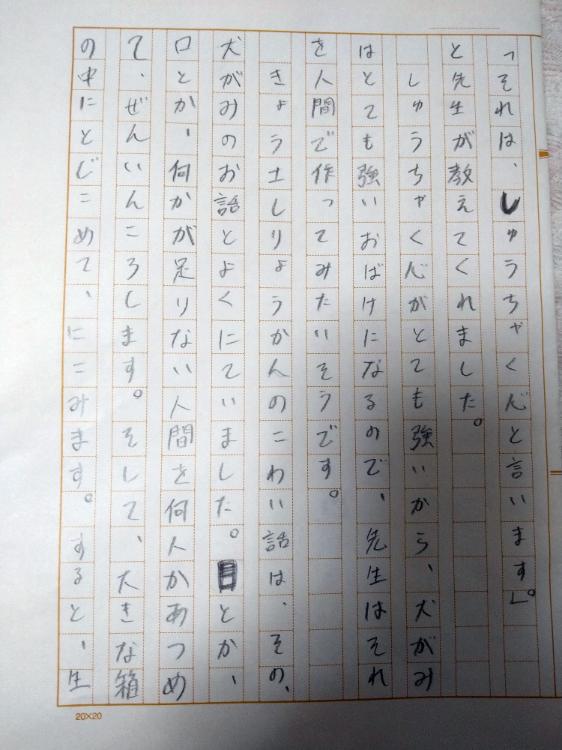 「それは、しゅうちゃく心と言います」。
と先生が教えてくれました。
しゅうちゃく心がとても強いから、犬がみ
はとても強いおばけになるので、先生はそれ
を人間で作ってみたいそうです。
きょう土しりょうかんのこわい話は、その、
犬がみのお話とよくにていました。目とか、
口とか、何かが足りない人間を何人かあつめ
て、ぜんいんころします。そして、大きな箱
の中にとじこめて、にこみます。すると、生
20×20